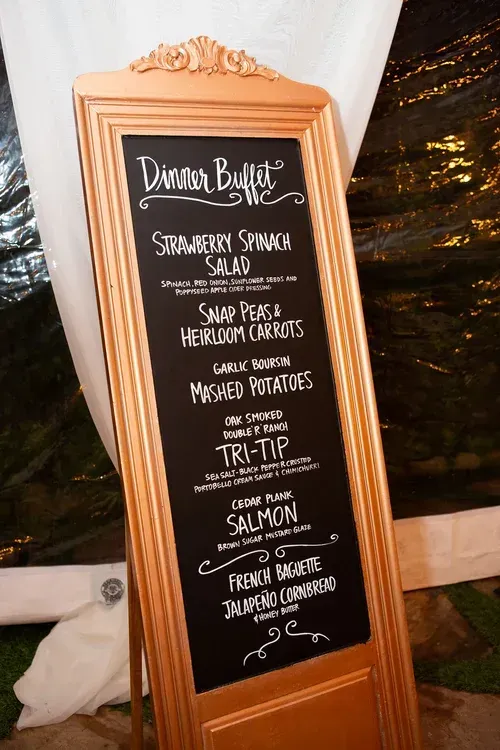 Dinner Buffet
STRAWBERRY SPINACH
SALAD
SPINACH, RED ONION, SUNFLOWER SEEDS AND
POPPYSEED APPLE CIDER DRESSING
SNAP PEAS &
HEIRLOOM CARROTS
GARLIC BOURSIN
MASHED POTATOES
OAK SMOKED
DOUBLE 'R' RANCH
TRI-TIP
SEA SALT-BLACK PEPPER CRUSTED
PORTOBELLO CREAM SAUCE & CHIMICHURRI
CEDAR PLANK
SALMON
BROWN SUGAR MUSTARD GLAZE
FRENCH BAGUETTE
JALAPEÑO CORNBREAD
& HONEY BUTTER